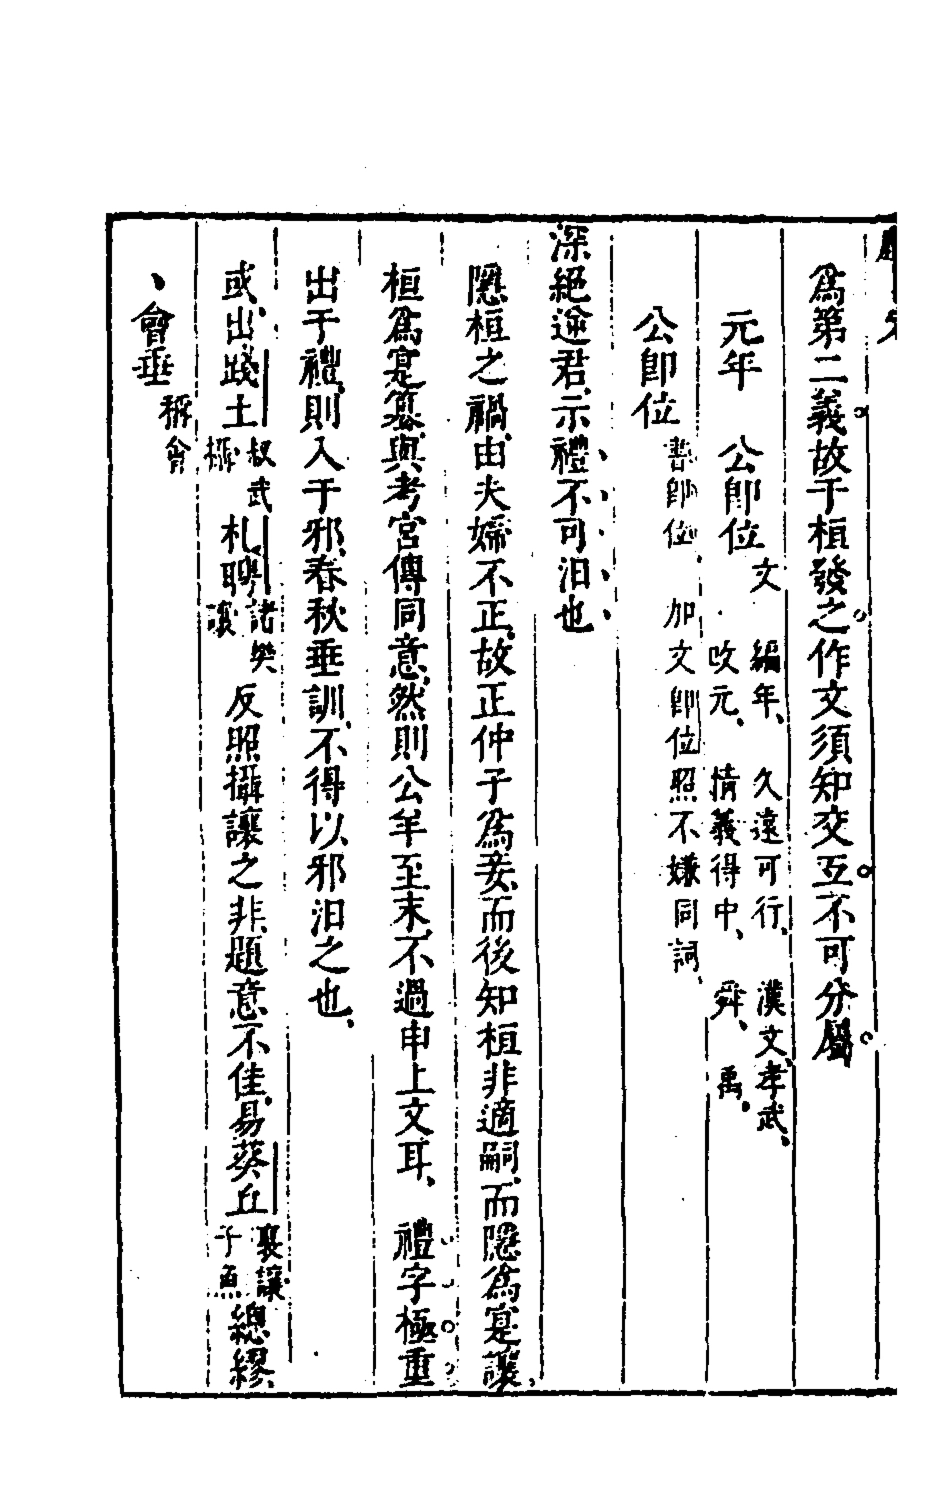 爲第二義故于桓發之作文須知交互不可分屬
元年　公卽位文　編年、久遠可行、漢文、孝武、
攺元、情義得中、舜、禹、
公卽位書卽位、加文卽位照不嫌同詞、
深絕逆君、示禮不可汨也
隱桓之禍、由夫婦不正、故正仲子爲妾、而後知桓非適嗣、而隱爲寔讓、
桓爲寔簒、與考宮傳同意、然則公羊至末、不過申上文耳、禮字極重
出于禮、則入于邪、春秋垂訓、不得以邪汨之也、
或、出踐土叔武稱札、聘諸樊讓反照攝讓之非、題意不佳、易葵丘襄讓子魚總繆、
、會垂稱會